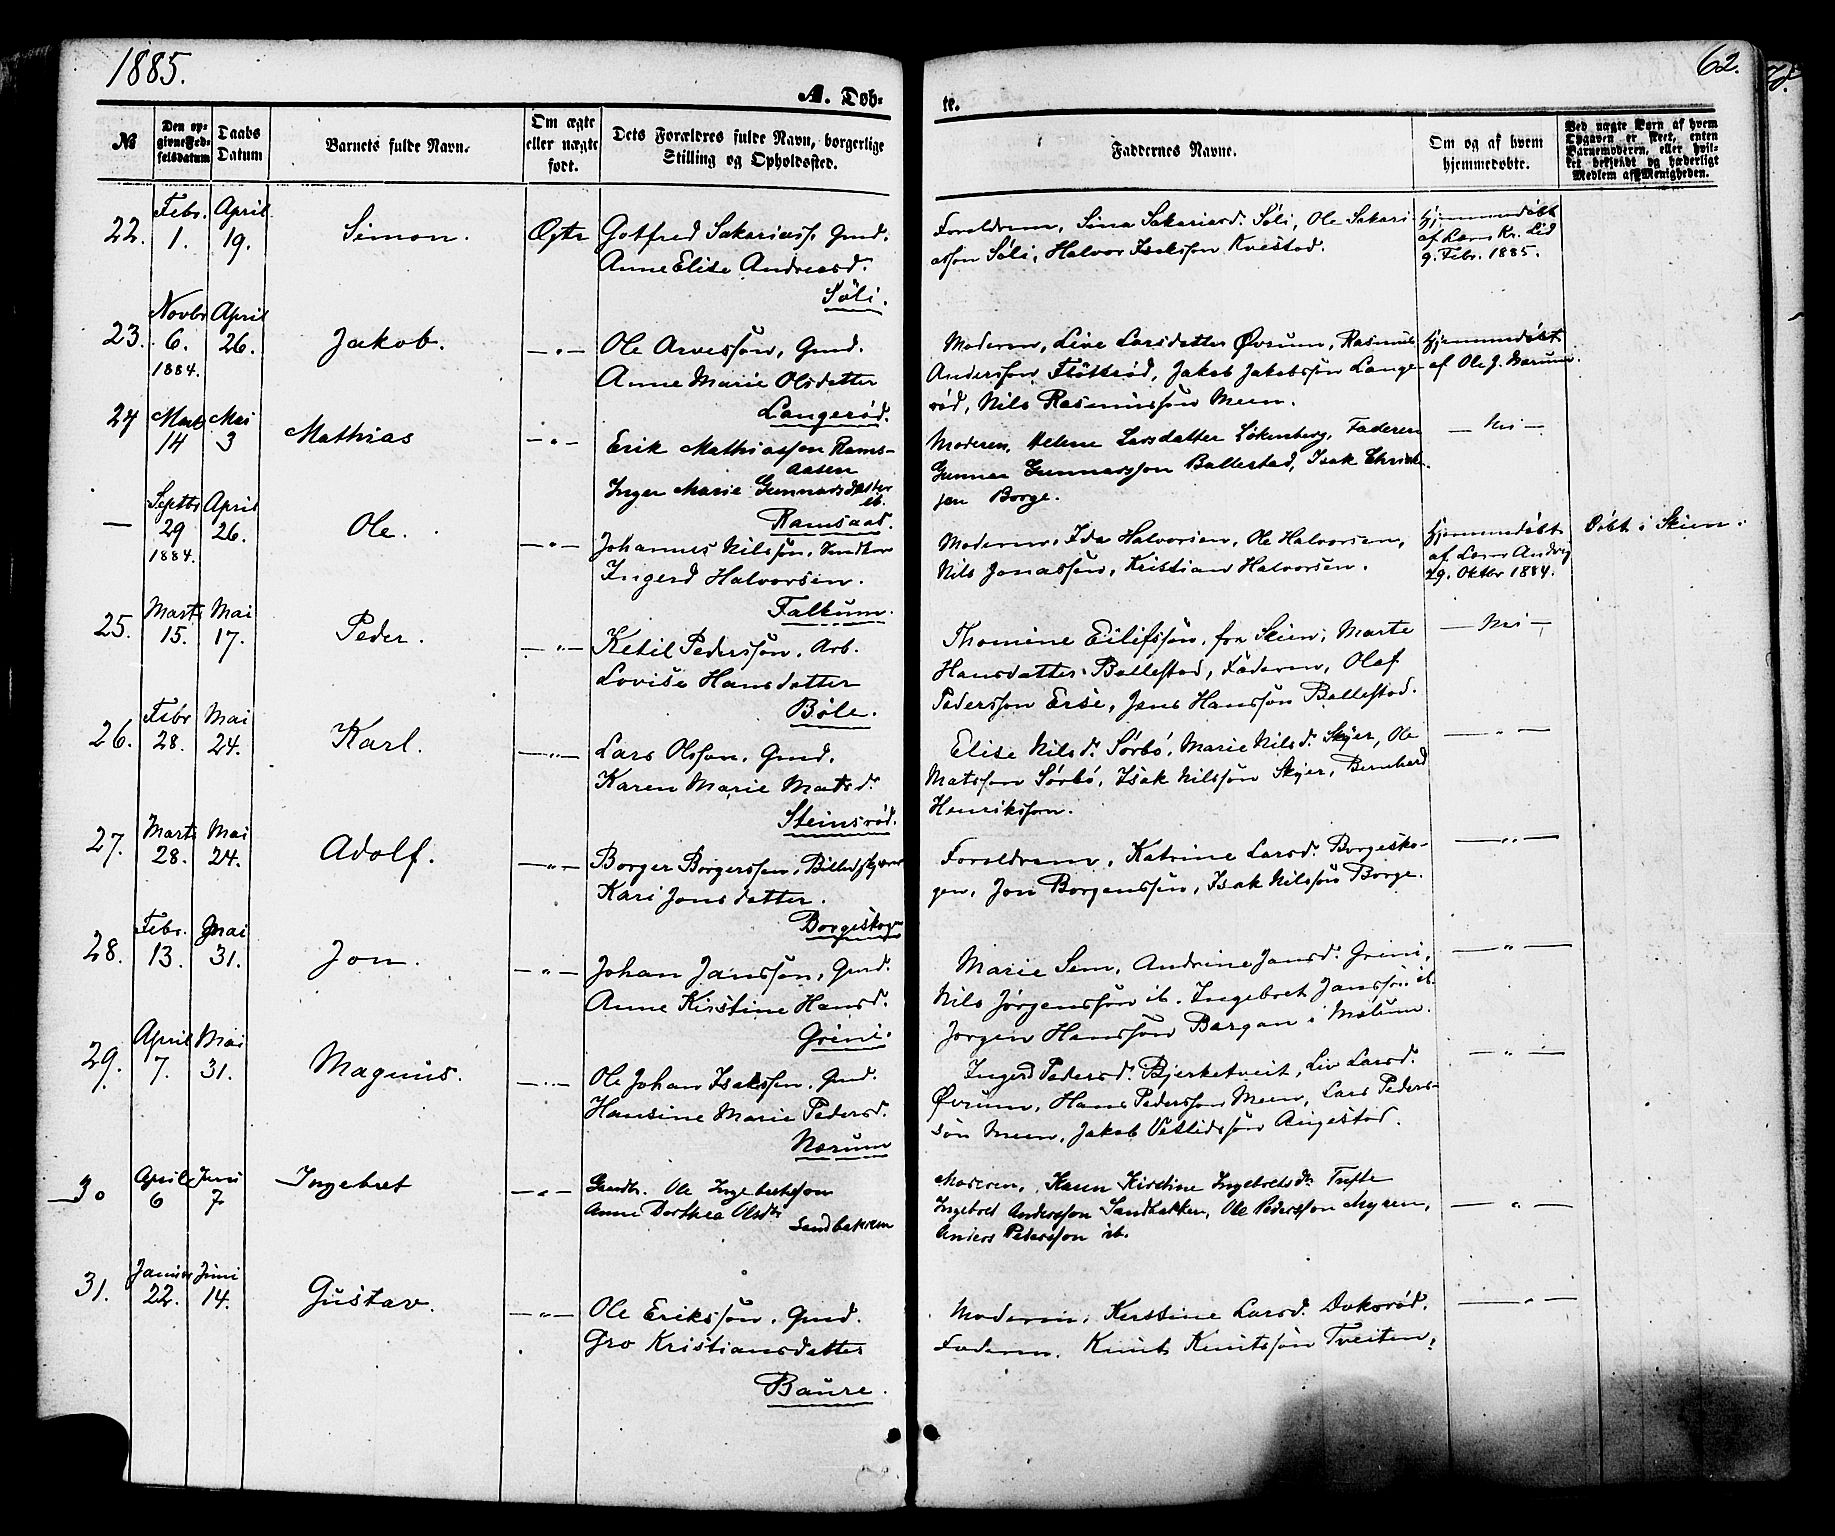 1885.
62.
A. Døb-
te.
№
Den op-
givne Fød-
selsdatum
Daabs
Datum
Barnets fulde Navn.
Om ægte
eller uægte
født.
Dets Forældres fulde Navn, borgerlige
Stilling og Opholdssted.
Faddernes Navne.
Om og af hvem
hjemmedøbte.
Ved uægte Børn af hvem
Opgaven er skeet, enten
Barnemoderen, eller hvil-
ket bekjendt og hæderligt
Medlem af Menigheden.
22. Febr. 1. April 19. Simon. Ægte Gotfred Sakariass. Gmd.
Anne Elise Andreasd.
Søli.
Forældrene, Sina Sakariasd. Søli, Ole Sakari
asson Søli, Halvor Isakssøn Kvestad.
Hjemmedøbt
af Lærer Kr. Lid
9. Febr. 1885.
23. Novbr 6. 1884. April 26. Jakob. — " — Ole Arvessøn, Gmd.
Anne Marie Olsdatter
Langerød.
Moderen, Live Larsdatter Øvrum, Rasmus
Anderssøn Fløtterød, Jakob Jakobssøn Lange-
rød, Nils Rasmussøn Meen.
Hjemmedøbt
af Ole J. Nærum.
24 Mart 14 Mai 3 Mathias — " — Erik Mathiassøn Rams-
aasen
Inger Marie Gunnarsdatter
ib.
Ramsaas.
Moderen, Helene Larsdatter Løkenberg, Faderen
Gunnar Gunnarssøn Ballestad, Isak Christ-
sen Borge.
— Nei —
— Septbr 29 1884. April 26. Ole. — " — Johannes Nilssøn,
Ingerd Halvorsen.
Falkum.
Moderen, Ida Halvorsen, Ole Halvorsen,
Nils Jonassøn, Kristian Halvorsen.
Hjemmedøbt
af Lærer Andvig
29. Oktbr 1884.
Døbt i Skien.
25. Marts 15. Mai 17. Peder. — " — Ketil Pederssøn, Arb.
Lovise Hansdatter
Bøle.
Thomine Eilifssøn, fra Skien, Marte
Hansdatter Ballestad, Faderen, Olaf
Pederssøn Erse, Jens Hanssøn Ballestad.
— Nei —
26. Febr 28. Mai 24. Karl. — " — Lars Olssøn, Gmd.
Karen Marie Matsd.
Steinsrød.
Elise Nilsd. Sørbø, Marie Nilsd. Skyer, Ole
Matssøn Sørbø, Isak Nilssøn Skyer, Bernhard
Henrikssøn.
— " —
27. Marts 28. Mai 24. Adolf. — " — Borger Borgerssøn,
Kari Jonsdatter.
Borgeskogen
Forældrene, Katrine Larsd. Borgesko-
gen, Jon Borgerssøn, Isak Nilssøn Borge.
— " —
28. Febr. 13. Mai 31. Jon. — " — Johan Janssøn, Gmd.
Anne Kirstine Hansd.
Grini.
Marie Sem, Andrine Jansd. Grini,
Nils Jørgenssøn ib. Ingebret Janssøn ib.
Jørgen Hanssøn Bargan i Mælum.
— " —
29. April 7. Mai 31. Magnus. — " — Ole Johan Isakssøn, Gmd.
Hansine Marie Pedersd.
Nærum
Ingerd Pedersd. Bjerketveit, Liv Larsd.
Øvrum, Hans Pederssøn Meen, Lars Peders-
søn Meen, Jakob Vetlidssøn Aigestad.
— " —
30 April 6 Juni 7 Ingebret — " — Gaardbr. Ole Ingebretssøn
Anne Dorthea Olsdtr
Sandbakken
Moderen, Karen Kirstine Ingebretsdr Tufte
Ingebret Anderssøn Sandbakken, Ole Pederssøn Myren,
Anders Pederssøn ib.
— " —
31. Januar 22. Juni 14. Gustav. — " — Ole Erikssøn, Gmd.
Gro Kristiansdatter
Baure.
Moderen, Kerstine Larsd. Doksrød.
Faderen. Knut Knutssøn Tveiten,
— " —